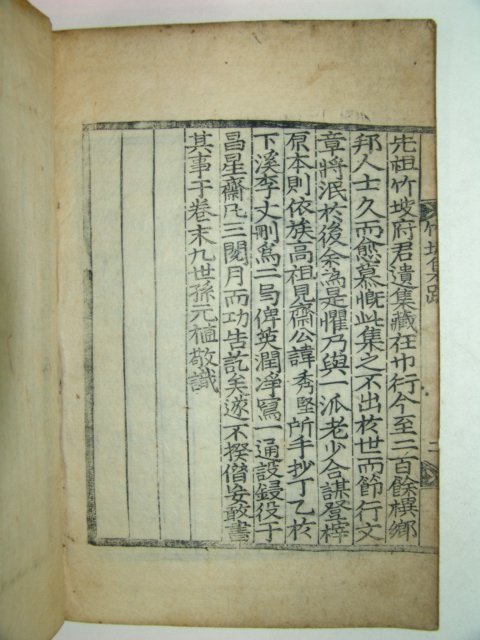 先祖竹坡府君遺集藏在巾衍今至二百餘禩鄕
邦人士久而愈慕慨此集之不出於世而節行文
章將泯於後余爲是懼乃與一派老少合謀登梓
原本則依族高祖見齋公諱秀堅所手抄丁乙於
下溪李丈刪爲二局俾英潤淨寫一通設鋟役于
昌星齋凡三閱月而功告訖矣遂不揆僭妄敢書
其事于卷末九世孫元植敬識
竹坡集跋